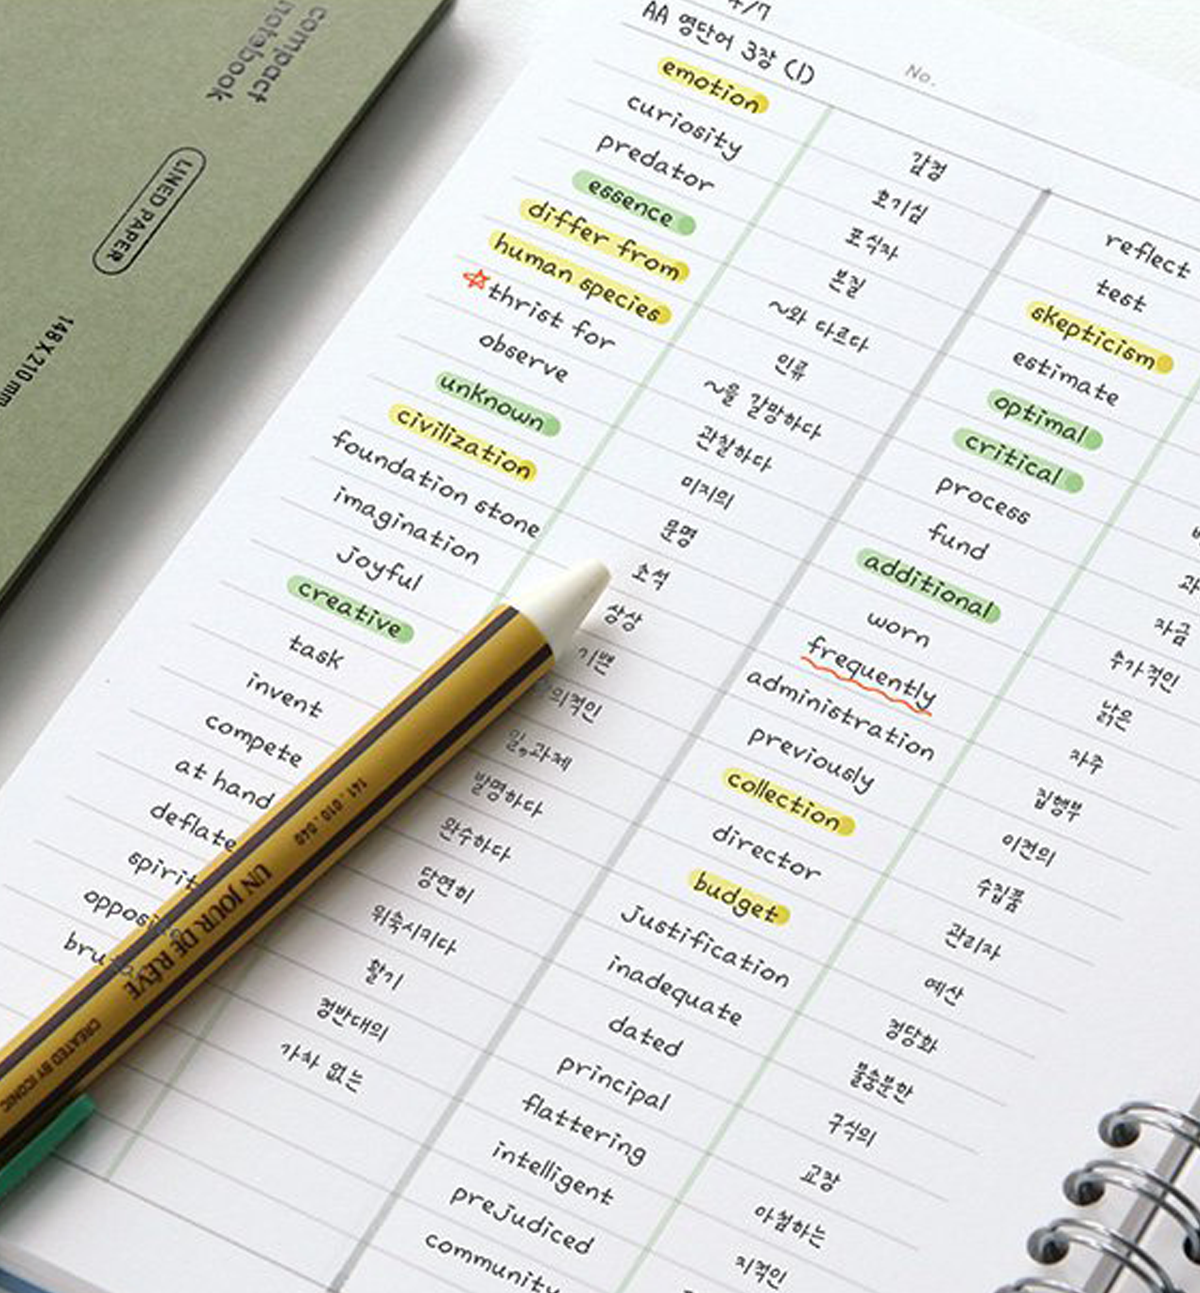 compact
notebook
LINED PAPER
148 X 210 mm
4/7
AA 영단어 3장 (1)
No.
emotion 감정
curiosity 호기심
predator 포식자
essence 본질
differ from ~와 다르다
human species 인류
☆thrist for ~을 갈망하다
observe 관찰하다
unknown 미지의
civilization 문명
foundation stone 초석
imagination 상상
joyful 기쁜
creative 의적인
task 일,과제
invent 발명하다
compete 완수하다
at hand 당연히
deflate 위축시키다
spirit 활기
opposite 정반대의
brutal 가차 없는
reflect
test
skepticism
estimate
optimal
critical
process 과
fund 자금
additional 추가적인
worn 낡은
frequently 자주
administration 집행부
previously 이전의
collection 수집품
director 관리자
budget 예산
justification 정당화
inadequate 불충분한
dated 구식의
principal 교장
flattering 아첨하는
intelligent 지적인
prejudiced
community
141 . 010 . 040
UN JOUR DE RÊVE
CREATED BY ICONIC